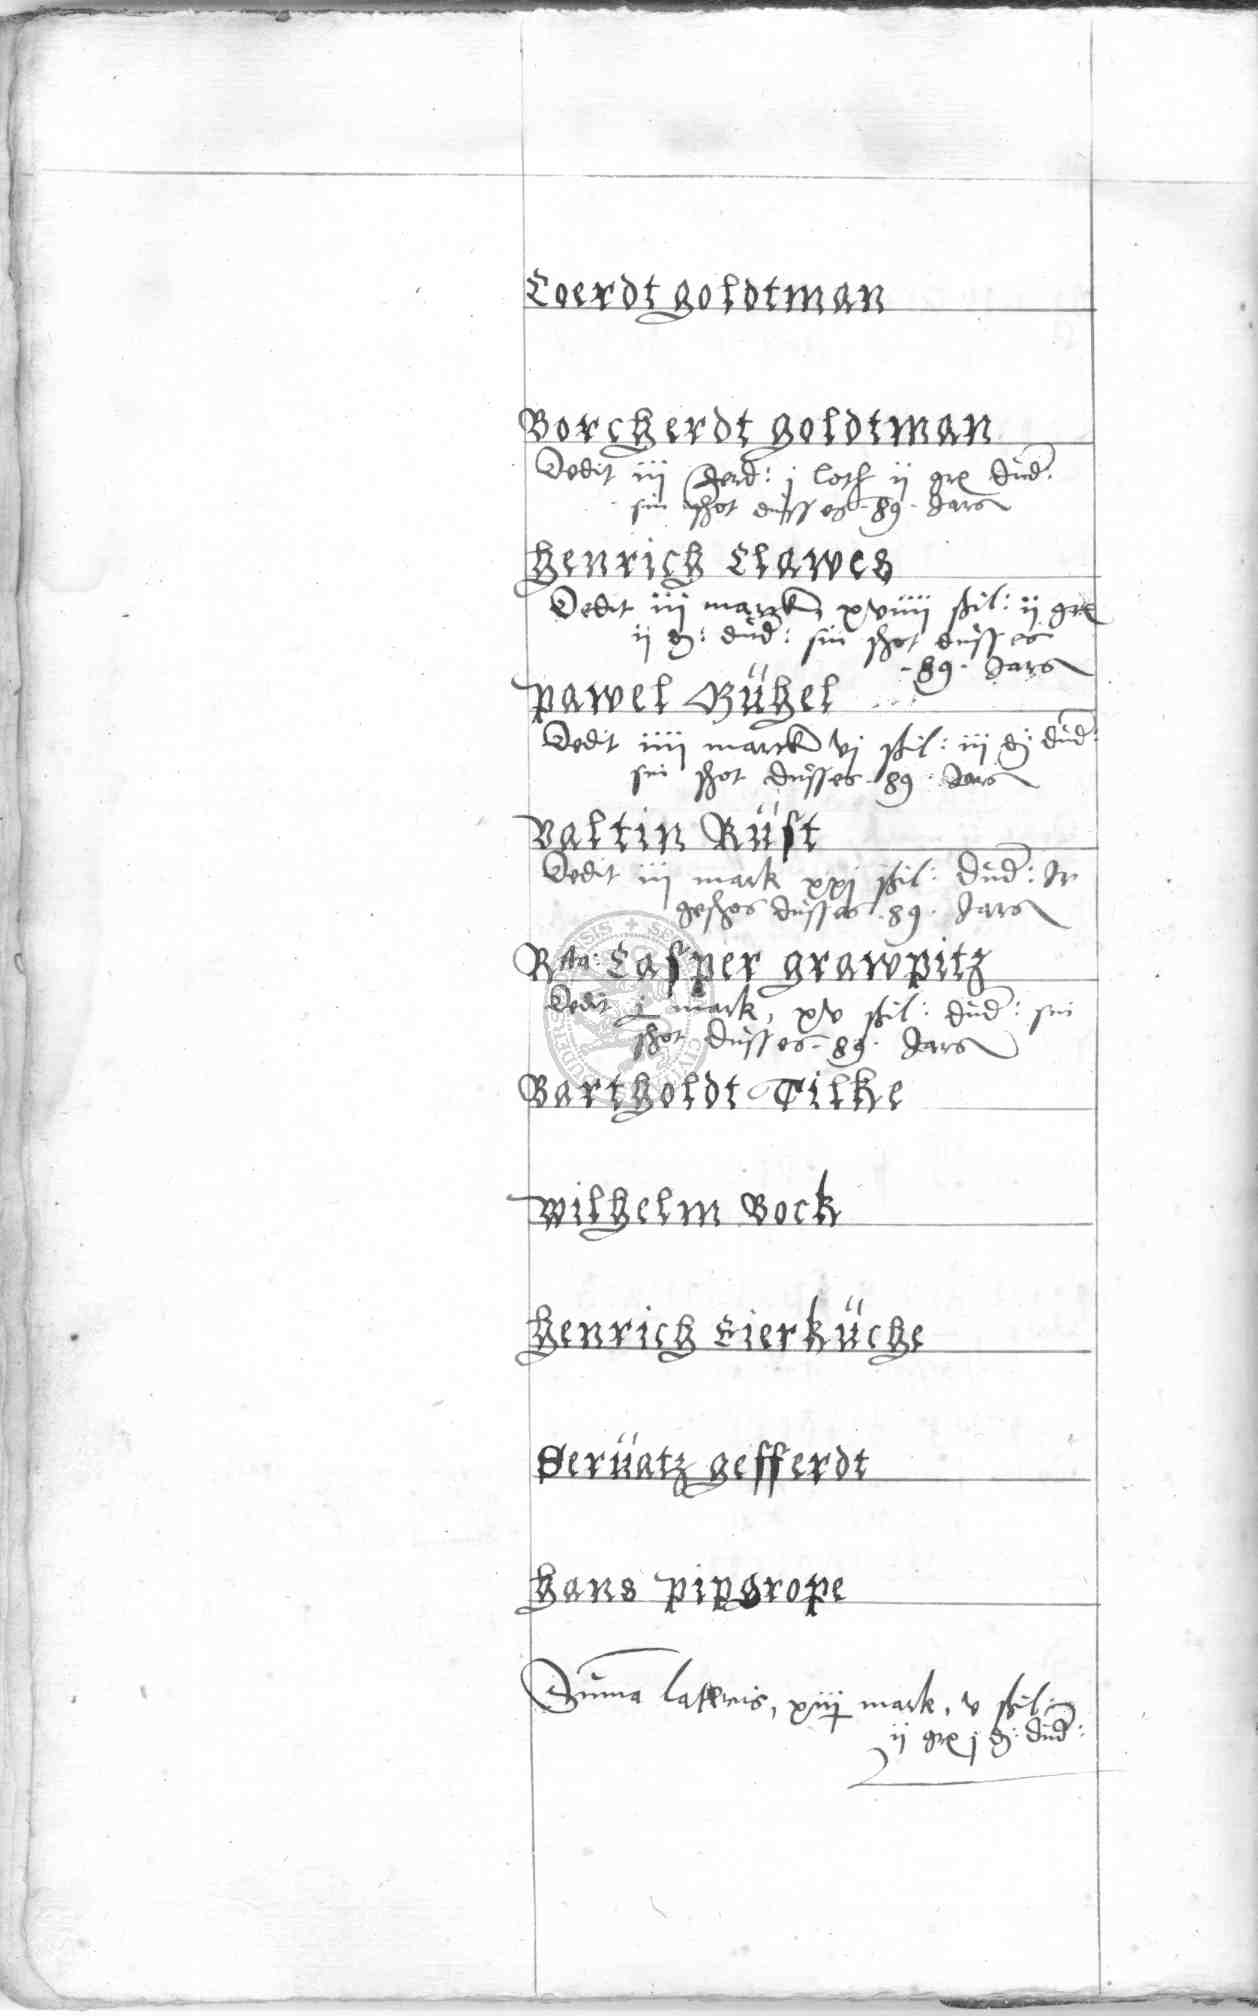 Coerdt goldtman
Borcherdt goldtman
Dedit iij ferd: j loth ij grx dud:
sin schot dusses · 89 · Jars
Henrich Clawes
Dedit iij marck, xviiij skil: ij grx
ij d: dud: sin schot dusses
· 89 · Jars
Pawel Bühel
Dedit iiij marck vj skil: iij d: dud:
sin schot dusses · 89 · Jars
Valtin Rüst
Dedit iij mark xxj skil: dud: Jr
geschos dusses · 89 · Jars
Rsta: Casper grawpitz
Dedit j mark, xv skil: dud: sin
schot dusses · 89 · Jars
Bartholdt Tilke
Wilhelm Bock
Henrich Eierküche
Serüatz gefferdt
Hans Pipgrope
Suma lateris, xiij mark, v skil:
ij grx j d: dud: